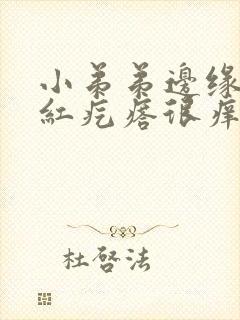 小弟弟邊缘
紅疙瘩很痒
杜啓法